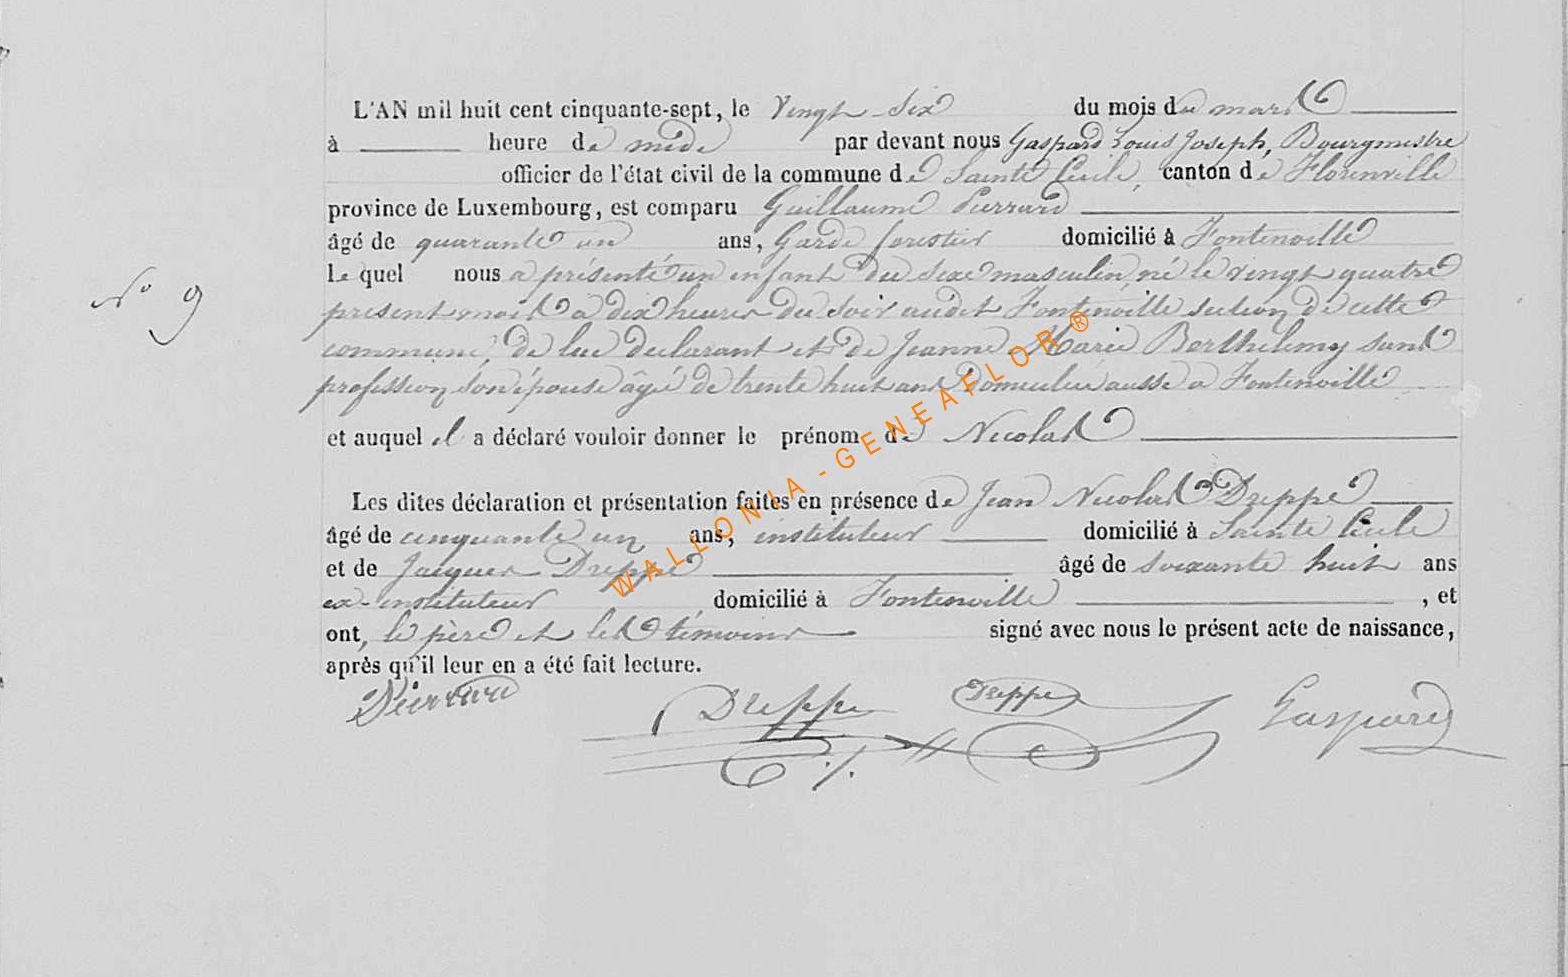 L'AN mil huit cent cinquante-sept, le Vingt Six du mois de mars
à heure de midi par devant nous Gaspard Louis Joseph, Bourgmestre
officier de l'état civil de la commune de Sainte Cécile, canton de Florenville
province de Luxembourg, est comparu Guillaume Pierrard
âgé de quarante un ans, Garde forestier domicilié à Fontenoille
le quel nous a présenté un enfant du sexe masculin, né le vingt quatre
présent mois à dix heures du soir audit Fontenoille section de cette
commune, de lui déclarant et de Jeanne Marie Berthelemy sans
profession son épouse âgé de trente huit ans domiciliée aussi a Fontenoille
N° 9
et auquel il a déclaré vouloir donner le prénom de Nicolas
Les dites déclaration et présentation faites en présence de Jean Nicolas Dreppe
âgé de cinquante un ans, instituteur domicilié à Sainte Cécile
et de Jacques Dreppe âgé de soixante huit ans
ex-instituteur domicilié à Fontenoille , et
ont, le père et les témoins signé avec nous le présent acte de naissance,
après qu'il leur en a été fait lecture.
Pierrard Dreppe Dreppe Gaspard
WALLONIA-GENEAFLOR®